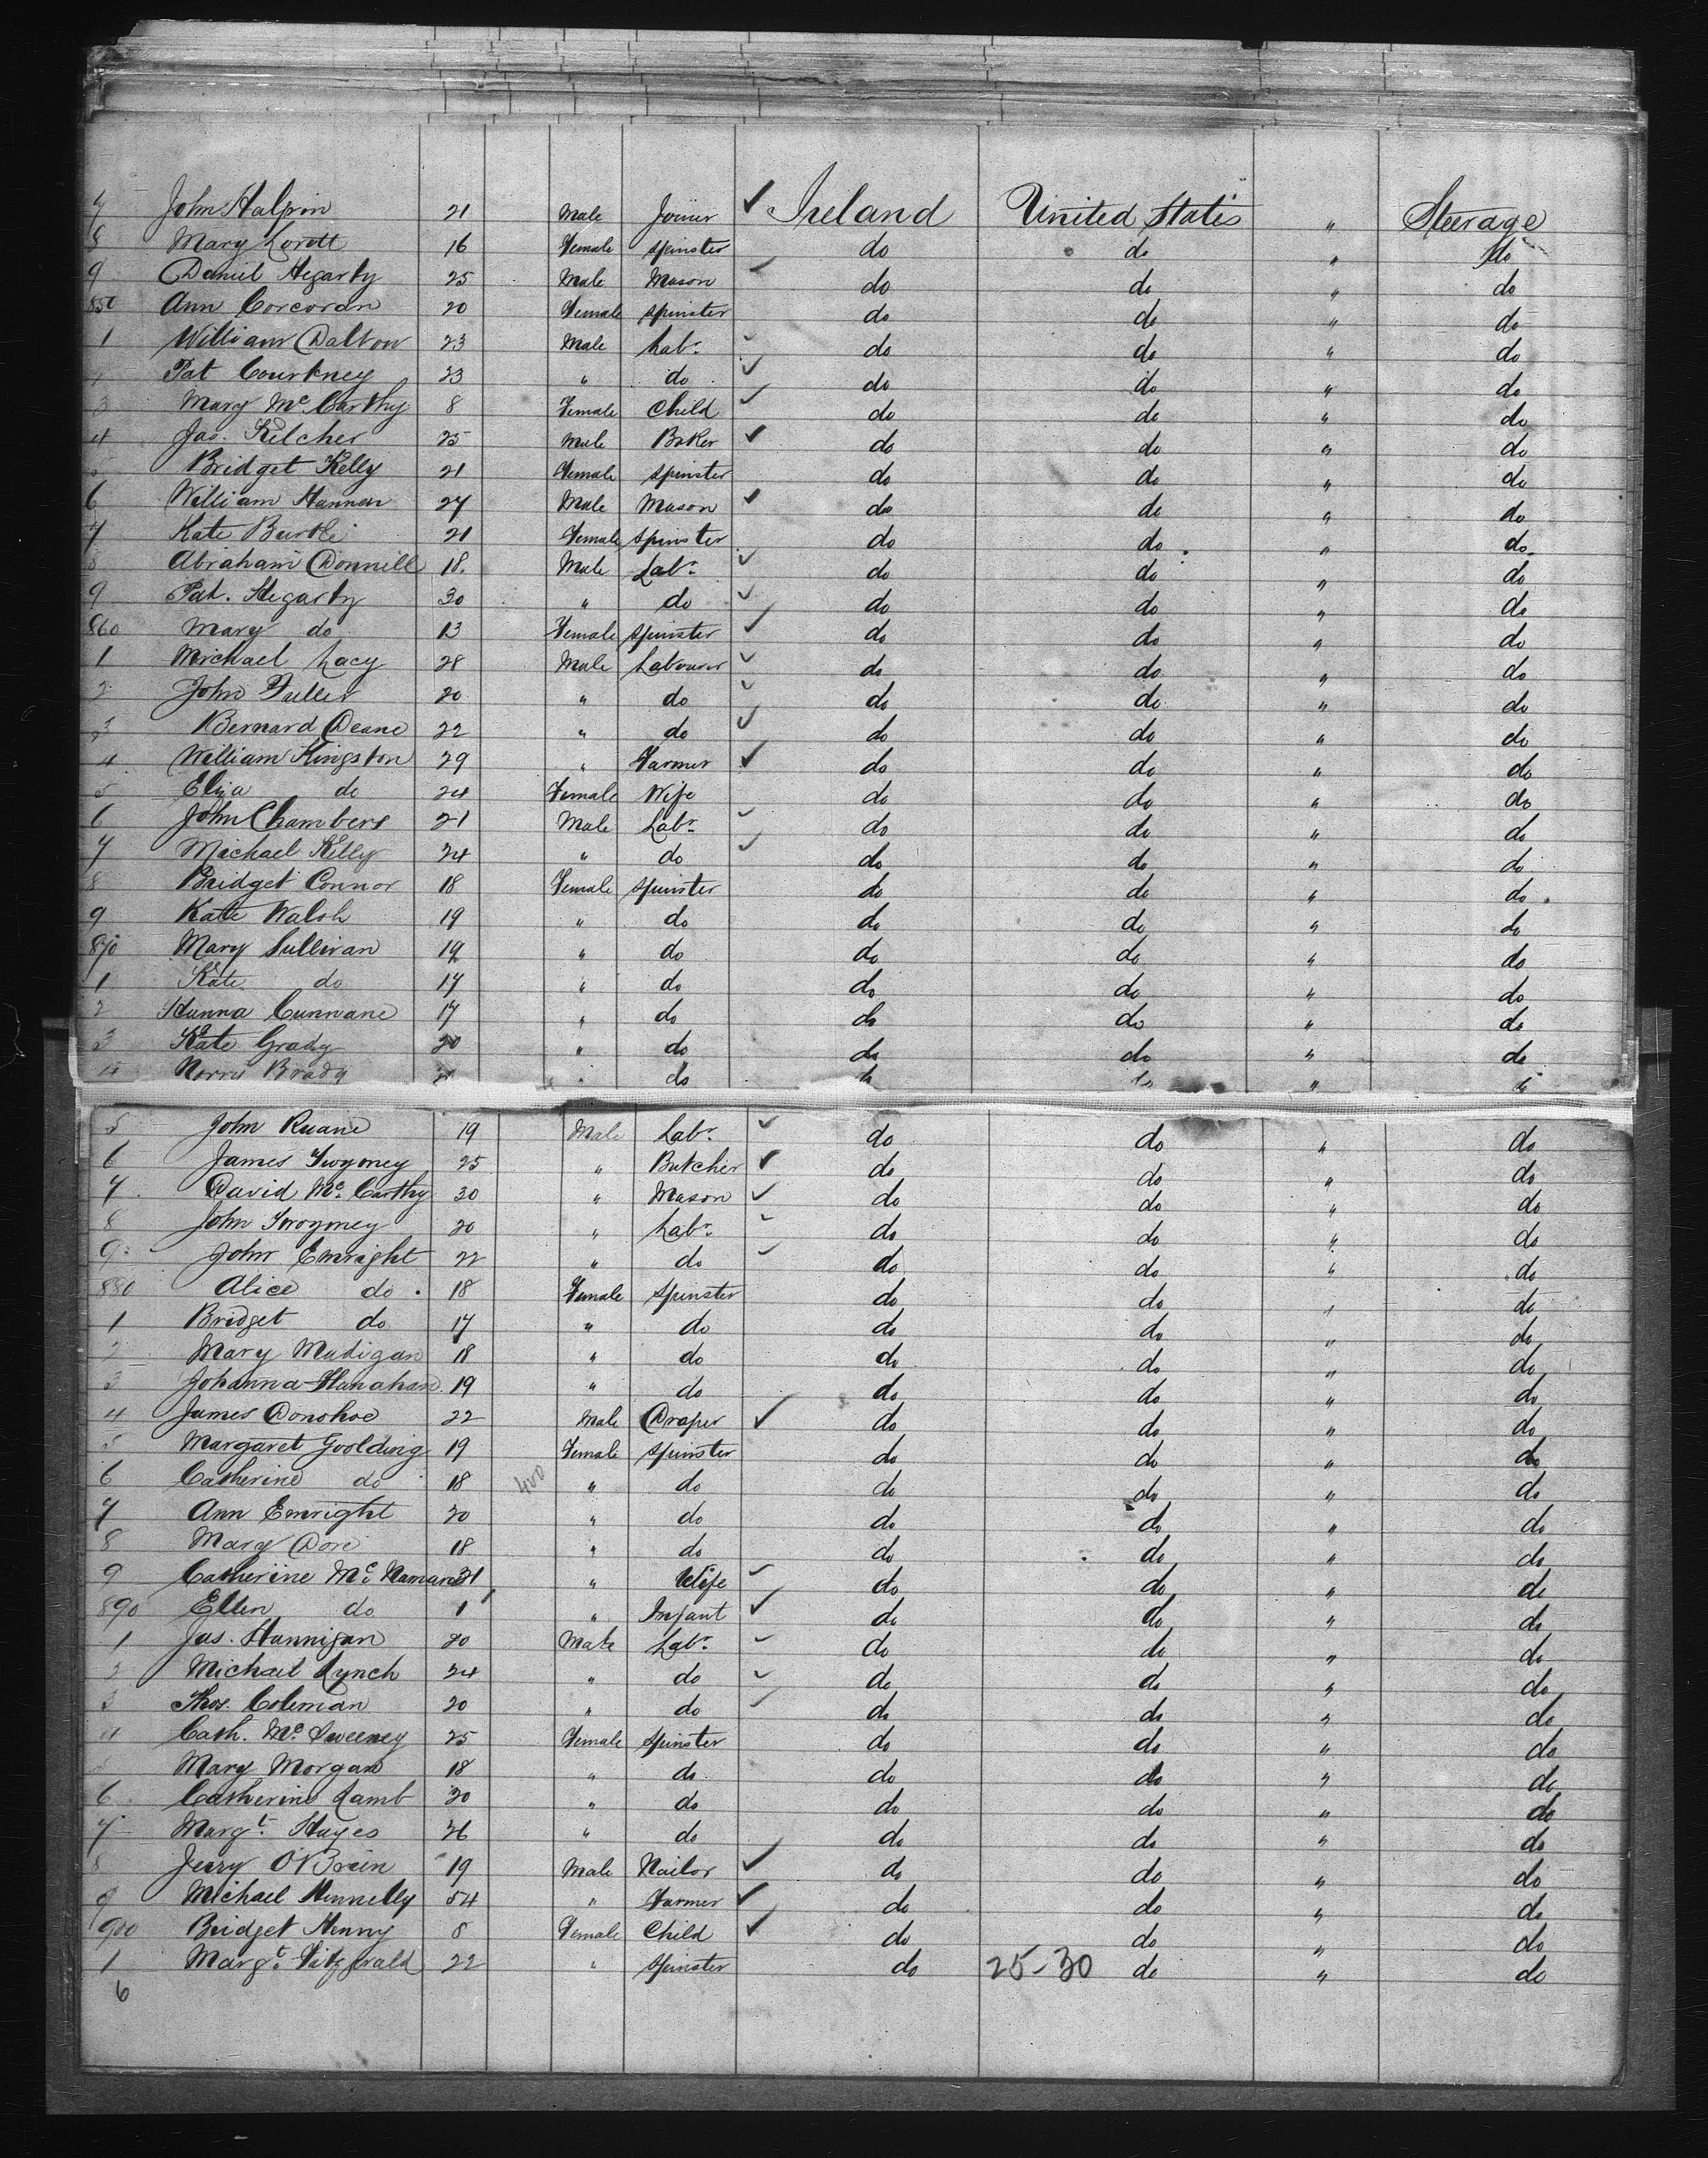 7 John Halpin 21 Male Joiner ✓ Ireland United States " Steerage
8 Mary Lovett 16 Female Spinster do do " do
9 Daniel Hegarty 25 Male Mason ✓ do do " do
850 Ann Corcoran 20 Female Spinster do do " do
1 William Dalton 23 Male Labr ✓ do do " do
2 Pat Courtney 23 " do ✓ do do " do
3 Mary Mc Carthy 8 Female Child ✓ do do " do
4 Jas. Kelcher 25 Male Baker ✓ do do " do
5 Bridget Kelly 21 Female Spinster do do " do
6 William Hannon 27 Male Mason ✓ do do " do
7 Kate Burke 21 Female Spinster do do " do
8 Abraham Donnill 18 Male Labr ✓ do do " do
9 Pat. Hegarty 30 " do ✓ do do " do
860 Mary do 13 Female Spinster ✓ do do " do
1 Michael Lacy 28 Male Labourer ✓ do do " do
2 John Fuller 20 " do ✓ do do " do
3 Bernard Deane 22 " do ✓ do do " do
4 William Kingston 29 " Farmer ✓ do do " do
5 Eliza do 24 Female Wife do do " do
6 John Chambers 21 Male Labr ✓ do do " do
7 Michael Kelly 24 " do ✓ do do " do
8 Bridget Connor 18 Female Spinster do do " do
9 Kate Walsh 19 " do do do " do
870 Mary Sullivan 19 " do do do " do
1 Kate do 17 " do do do " do
2 Hanna Cunnane 17 " do do do " do
3 Kate Grady 20 " do do do " do
4 Norry Brady " do do do " do
5 John Ruane 19 Male Labr ✓ do do " do
6 James Twomey 25 " Butcher ✓ do do " do
7 David Mc Carthy 30 " Mason ✓ do do " do
8 John Twomey 20 " Labr ✓ do do " do
9 John Enright 22 " do ✓ do do " do
880 Alice do 18 Female Spinster do do " do
1 Bridget do 17 " do do do " do
2 Mary Madigan 18 " do do do " do
3 Johanna Hanahan 19 " do do do " do
4 James Donohoe 22 Male Draper ✓ do do " do
5 Margaret Goolding 19 Female Spinster do do " do
6 Catherine do 18 400 " do do do " do
7 Ann Enright 20 " do do do " do
8 Mary Dore 18 " do do do " do
9 Catherine Mc Namara 31 " Wife ✓ do do " do
890 Ellen do 1 " Infant ✓ do do " do
1 Jas. Hannigan 20 Male Labr ✓ do do " do
2 Michael Lynch 24 " do ✓ do do " do
3 Thos. Coleman 20 " do ✓ do do " do
4 Cath. Mc Sweeney 25 Female Spinster do do " do
5 Mary Morgan 18 " do do do " do
6 Catherine Lamb 20 " do do do " do
7 Margt. Hayes 26 " do do do " do
8 Jerry O'Brein 19 Male Nailor ✓ do do " do
9 Michael Hennelly 54 " Farmer ✓ do do " do
900 Bridget Henny 8 Female Child ✓ do do " do
1 Margt. Fitzgerald 22 " Spinster do 25-30 do " do
6